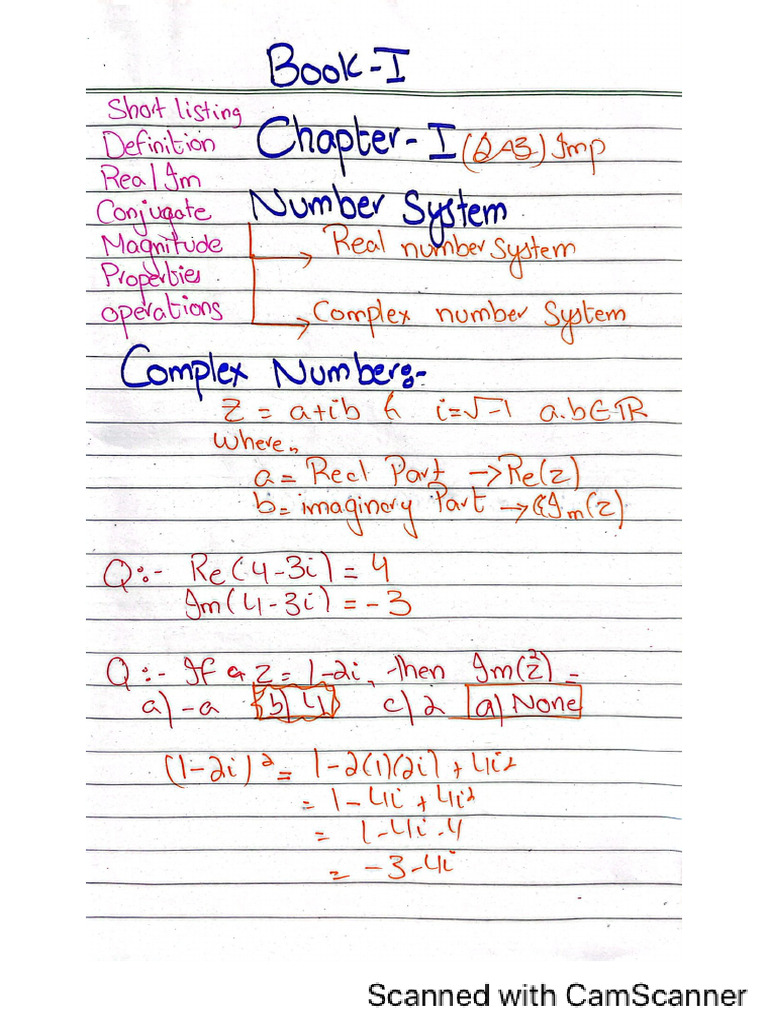 Book-I
Short listing
Definition
Real Im
Conjugate
Magnitude
Properties
operations
Chapter-I (2→3) Imp
Number System
→ Real number system
→ Complex number System
Complex Number:-
Z = a+ib & i=√-1 a.b∈ℝ
where,,
a = Real Part → Re(z)
b = imaginary Part → Im(z)
Q:- Re(4-3i) = 4
Im(4-3i) = -3
Q:- If z = 1-2i, then Im(z²) =
a) -2 b) 4 c) 2 d) None
(1-2i)² = 1-2(1)(2i) + 4i²
= 1-4i + 4i²
= 1-4i-4
= -3-4i
Scanned with CamScanner